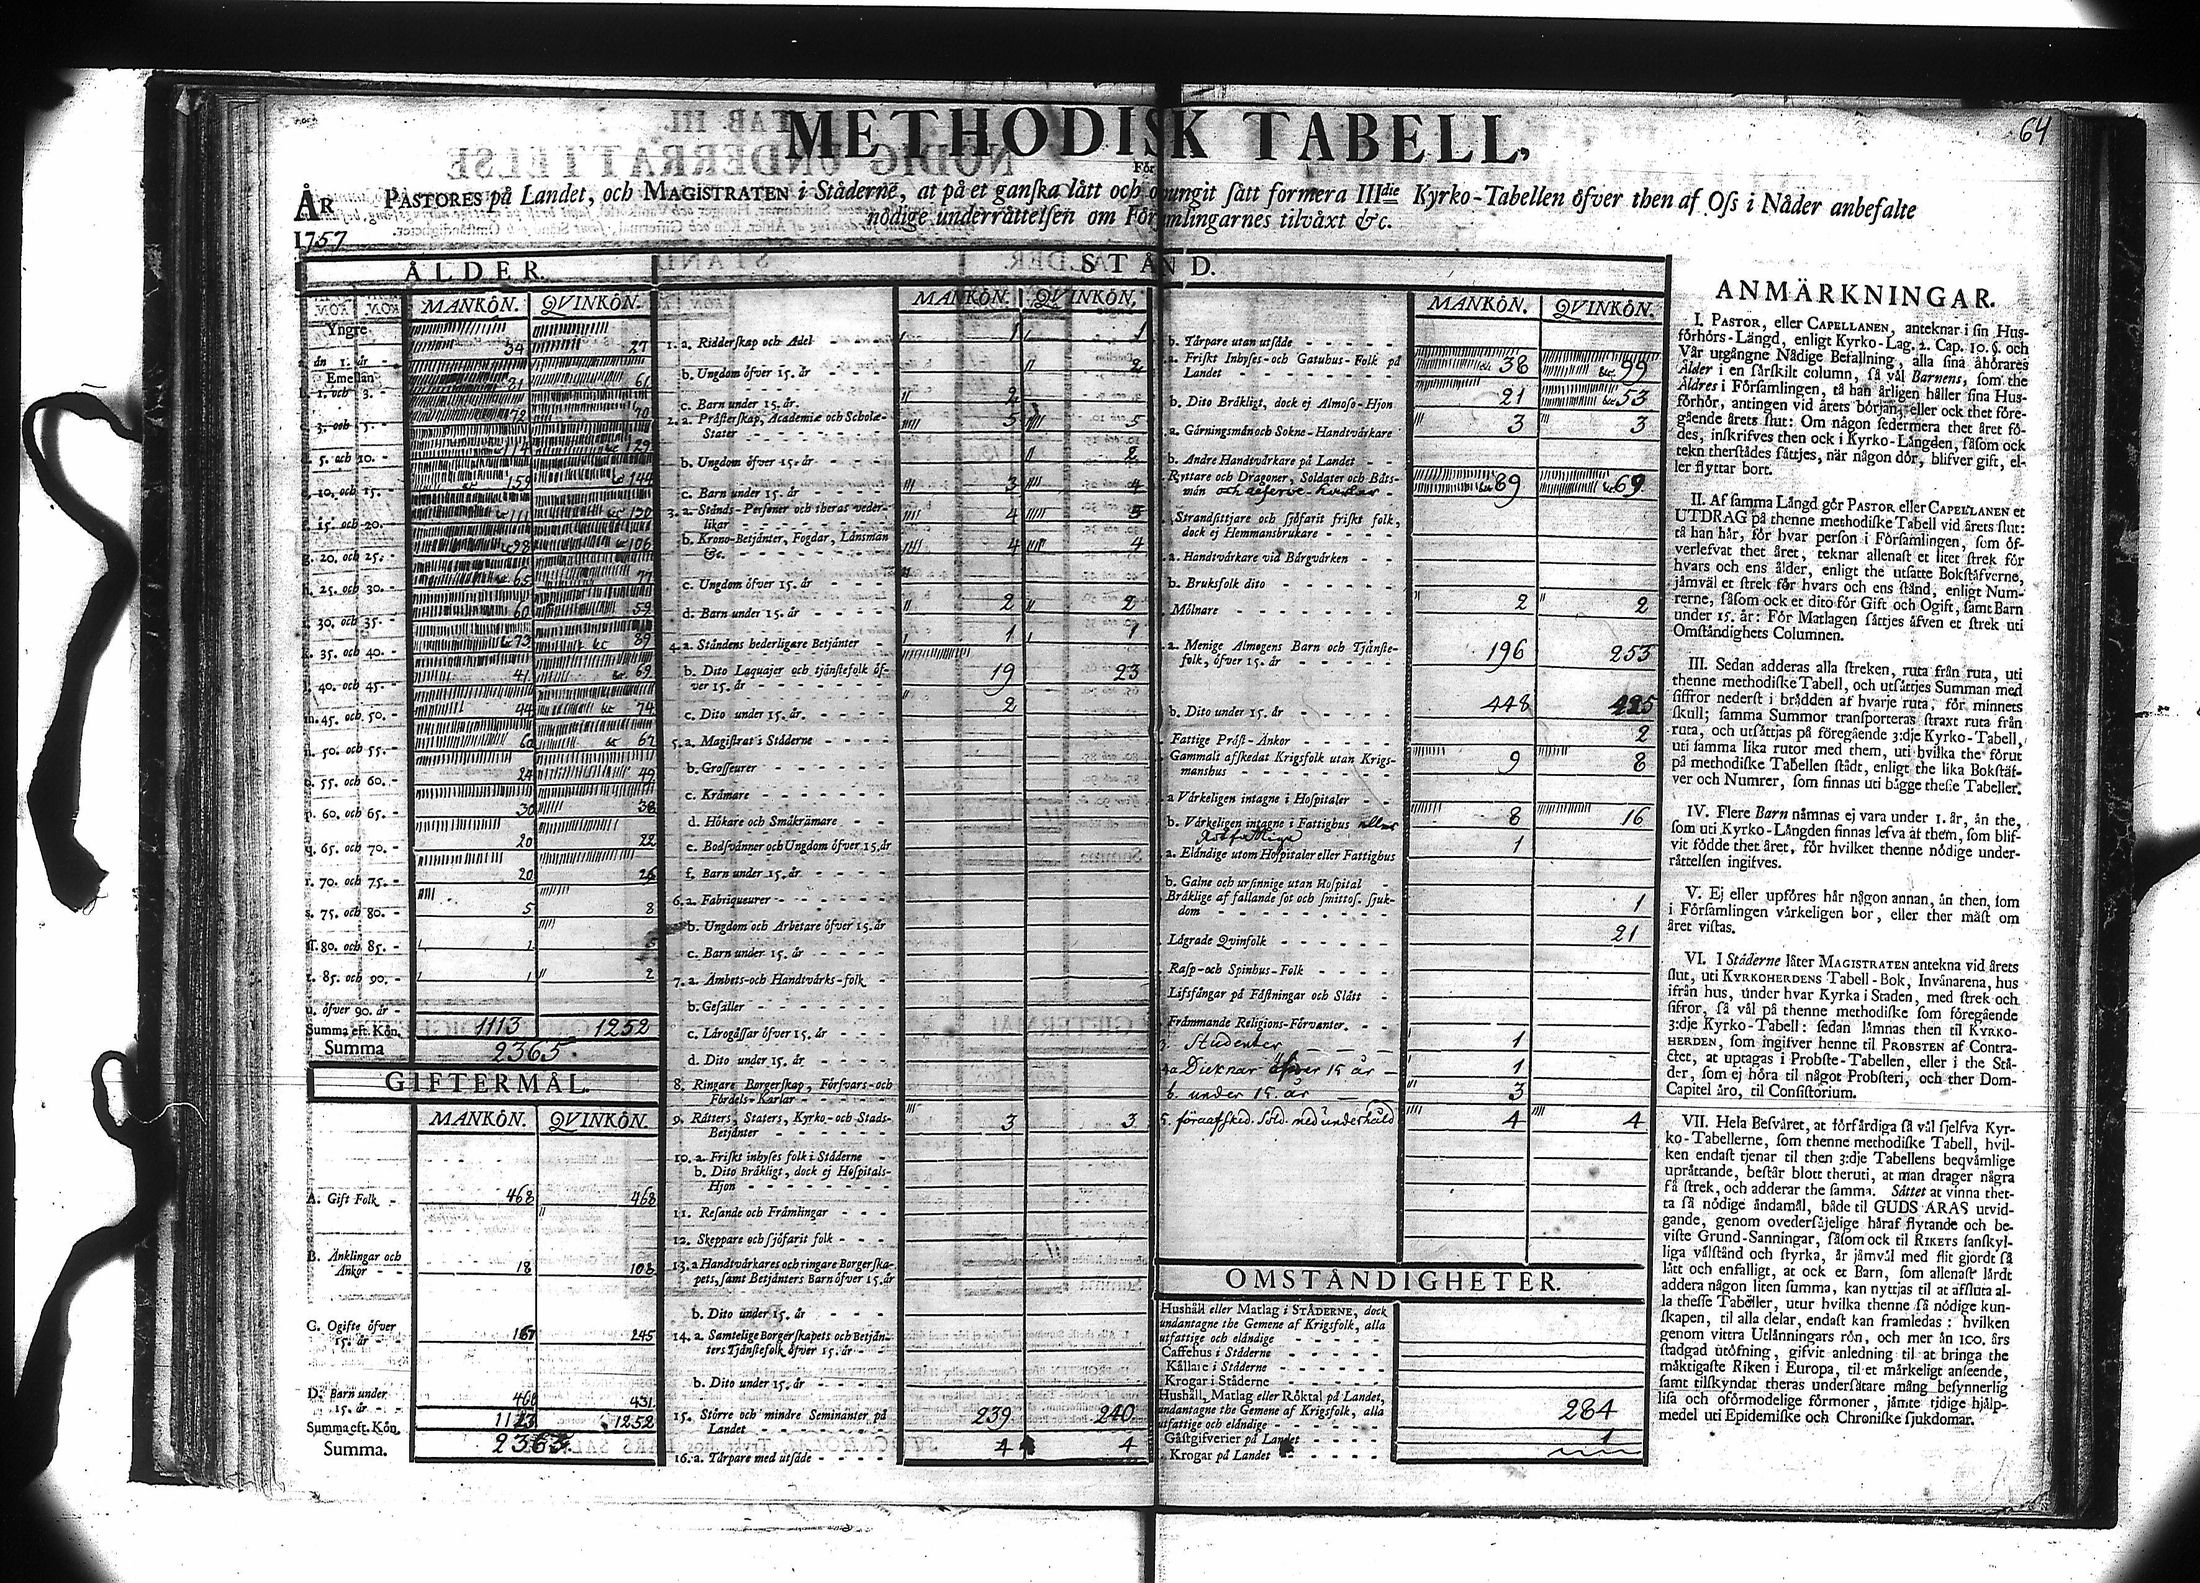 64
METHODISK TABELL,
För
ÅR PASTORES på Landet, och MAGISTRATEN i Städerne, at på et ganska lätt och otungit sätt formera IIIdie Kyrko-Tabellen öfver then af Oss i Nåder anbefalte
1757 nödige underrättelsen om Församlingarnes tilväxt &c.
ÅLDER.
MANKÖN. QVINKÖN.
Yngre
än 1. år - 34 27
Emellan
1. och 3. - 81 61
3. och 5. - 72 70
5. och 10. - 114 129
10. och 15. - 159 144
15. och 20. - 111 130
g. 20. och 25. - 98 106
h. 25. och 30. - 65 77
30. och 35. - 60 59
k. 35. och 40. - 73 89
40. och 45. - 41 69
m. 45. och 50. - 44 74
n. 50. och 55. - 60 67
o. 55. och 60. - 24 49
p. 60. och 65. - 30 38
q. 65. och 70. - 20 22
r. 70. och 75. - 20 26
s. 75. och 80. - 5 8
80. och 85. - 1 5
t. 85. och 90. - 1 2
u. öfver 90. år -
Summa eft. Kön. 1113 1252
Summa 2365.
GIFTERMÅL.
MANKÖN. QVINKÖN.
A. Gift Folk - 468 468
B. Änklingar och
Änkor - - 18 108
C. Ogifte öfver
15. år - - 167 245
D. Barn under
15. år - - 460 431
Summa eft. Kön. 1113 1252
Summa. 2365.
STÅND.
MANKÖN. QVINKÖN.
1. a. Ridderskap och Adel 1 1
b. Ungdom öfver 15. år 2
c. Barn under 15. år. 2
2. a. Prästerskap, Academiæ och Scholæ-
Stater 5 5
b. Ungdom öfver 15. år 2
c. Barn under 15. år 3 4
3. a. Stånds-Personer och theras veder-
likar 4 5
b. Krono-Betjänter, Fogdar, Länsmän
&c. 4 4
c. Ungdom öfver 15. år
d. Barn under 15. år 2 2
4. a. Ståndens hederligare Betjänter 1 1
b. Dito Laquajer och tjänstefolk öf-
ver 15. år 19 23
c. Dito under 15. år. 2
5. a. Magistrat i Städerne
b. Grosseurer
c. Krämare
d. Hökare och Småkrämare
e. Bodsvänner och Ungdom öfver 15. år
f. Barn under 15. år
6. a. Fabriqueurer
b. Ungdom och Arbetare öfver 15. år
c. Barn under 15. år
7. a. Ämbets-och Handtvärks-folk
b. Gesäller
c. Lärogåssar öfver 15. år
d. Dito under 15. år
8. Ringare Borgerskap, Försvars-och
Fördels-Karlar
9. Rätters, Staters, Kyrko-och Stads-
Betjänter 3 3
10. a. Friskt inhyses folk i Städerne
b. Dito Bräkligt, dock ej Hospitals-
Hjon
11. Resande och Främlingar
12. Skeppare och sjöfarit folk
13. a Handtvärkares och ringare Borgerska-
pets, samt Betjänters Barn öfver 15. år
b. Dito under 15. år
14. a. Samtelige Borgerskapets och Betjän-
ters Tjänstefolk öfver 15. år
b. Dito under 15. år
15. Större och mindre Seminanter på
Landet 239 240
16. a. Tårpare med utsäde 4 4
MANKÖN. QVINKÖN.
b. Tårpare utan utsäde
a. Friskt Inhyses-och Gatuhus-Folk på
Landet 38 99
b. Dito Bräkligt, dock ej Almoso-Hjon 21 53
a. Gärningsmän och Sokne-Handtvärkare 3 3
b. Andre Handtvärkare på Landet
Ryttare och Dragoner, Soldater och Båts-
män 89 69
Strandsittjare och sjöfarit friskt folk,
dock ej Hemmansbrukare
a. Handtvärkare vid Bärgvärken
b. Bruksfolk dito
Mölnare 2 2
a. Menige Almogens Barn och Tjänste-
folk, öfver 15. år 196 253
b. Dito under 15. år 448 425
Fattige Präst-Änkor 2
Gammalt afskedat Krigsfolk utan Krigs-
manshus 9 8
a Värkeligen intagne i Hospitaler
b. Värkeligen intagne i Fattighus eller 8 16
a. Eländige utom Hospitaler eller Fattighus 1
b. Galne och ursinnige utan Hospital
Bräklige af fallande sot och smittos. sjuk-
dom 1
Lägrade Qvinfolk 21
Rasp-och Spinhus-Folk
Lifsfångar på Fästningar och Slått
Främmande Religions-Förvanter.
3. Studenter 1
4a Dieknar öfver 15 år 1
b. under 15. år 3
5. föraafsked. Sold. med underhåld 4 4
OMSTÄNDIGHETER.
Hushåll eller Matlag i STÄDERNE, dock
undantagne the Gemene af Krigsfolk, alla
utfattige och eländige
Caffehus i Städerne
Källare i Städerne
Krogar i Städerne
Hushåll, Matlag eller Röktal på Landet,
undantagne the Gemene af Krigsfolk, alla
utfattige och eländige 284
Gästgifverier på Landet 1
Krogar på Landet
ANMÄRKNINGAR.
I. PASTOR, eller CAPELLANEN, anteknar i sin Hus-
förhörs-Längd, enligt Kyrko-Lag. 2. Cap. 10. §. och
Vår utgångne Nådige Befallning, alla sina åhörares
Ålder i en särskilt column, så väl Barnens, som the
Äldres i Församlingen, tå han årligen håller sina Hus-
förhör, antingen vid årets början, eller ock thet före-
gående årets slut: Om någon sedermera thet året fö-
des, inskrifves then ock i Kyrko-Längden, såsom ock
tekn therstädes sättjes, när någon dör, blifver gift, el-
ler flyttar bort.
II. Af samma Längd gör PASTOR eller CAPELLANEN et
UTDRAG på thenne methodiske Tabell vid årets slut:
tå han här, för hvar person i Församlingen, som öf-
verlefvat thet året, teknar allenast et litet strek för
hvars och ens ålder, enligt the utsatte Bokstäfverne,
jämväl et strek för hvars och ens stånd, enligt Num-
rerne, såsom ock et dito för Gift och Ogift, samt Barn
under 15. år: För Matlagen sättjes äfven et strek uti
Omständighets Columnen.
III. Sedan adderas alla streken, ruta från ruta, uti
thenne methodiske Tabell, och utsättjes Summan med
siffror nederst i brädden af hvarje ruta, för minnets
skull; samma Summor transporteras straxt ruta från
ruta, och utsättjas på föregående 3:dje Kyrko-Tabell,
uti samma lika rutor med them, uti hvilka the förut
på methodiske Tabellen städt, enligt the lika Bokstäf-
ver och Numrer, som finnas uti bägge thesse Tabeller.
IV. Flere Barn nämnas ej vara under 1. år, än the,
som uti Kyrko-Längden finnas lefva af them, som blif-
vit födde thet året, för hvilket thenne nödige under-
rättelsen ingifves.
V. Ej eller upföres här någon annan, än then, som
i Församlingen värkeligen bor, eller ther mäst om
året vistas.
VI. I Städerne låter MAGISTRATEN antekna vid årets
slut, uti KYRKOHERDENS Tabell-Bok, Invånarena, hus
ifrån hus, under hvar Kyrka i Staden, med strek och
sifror, så väl på thenne methodiske som föregående
3:dje Kyrko-Tabell: sedan lämnas then til KYRKO-
HERDEN, som ingifver henne til PROBSTEN af Contra-
ctet, at uptagas i Probste-Tabellen, eller i the Stä-
der, som ej höra til något Probsteri, och ther Dom-
Capitel äro, til Consistorium.
VII. Hela Besväret, at förfärdiga så väl sjelfva Kyr-
ko-Tabellerne, som thenne methodiske Tabell, hvil-
ken endast tjenar til then 3:dje Tabellens beqvämlige
uprättande, består blott theruti, at man drager några
få strek, och adderar the samma. Sättet at vinna thet-
ta så nödige ändamål, både til GUDS ÄRAS utvid-
gande, genom ovedersäjelige häraf flytande och be-
viste Grund-Sanningar, såsom ock til RIKETS sanskyl-
liga välstånd och styrka, är jämväl med flit gjordt så
lätt och enfalligt, at ock et Barn, som allenast lärdt
addera någon liten summa, kan nyttjas til at afsluta al-
la thesse Tabeller, utur hvilka thenne så nödige kun-
skapen, til alla delar, endast kan framledas: hvilken
genom vittra Utlänningars rön, och mer än 100. års
stadgad utöfning, gifvit anledning til at bringa the
mäktigaste Riken i Europa, til et märkeligt anseende,
samt tilskyndat theras undersåtare mång besynnerlig
lisa och oförmodelige förmoner, jämte tidige hjälp-
medel uti Epidemiske och Chroniske sjukdomar.